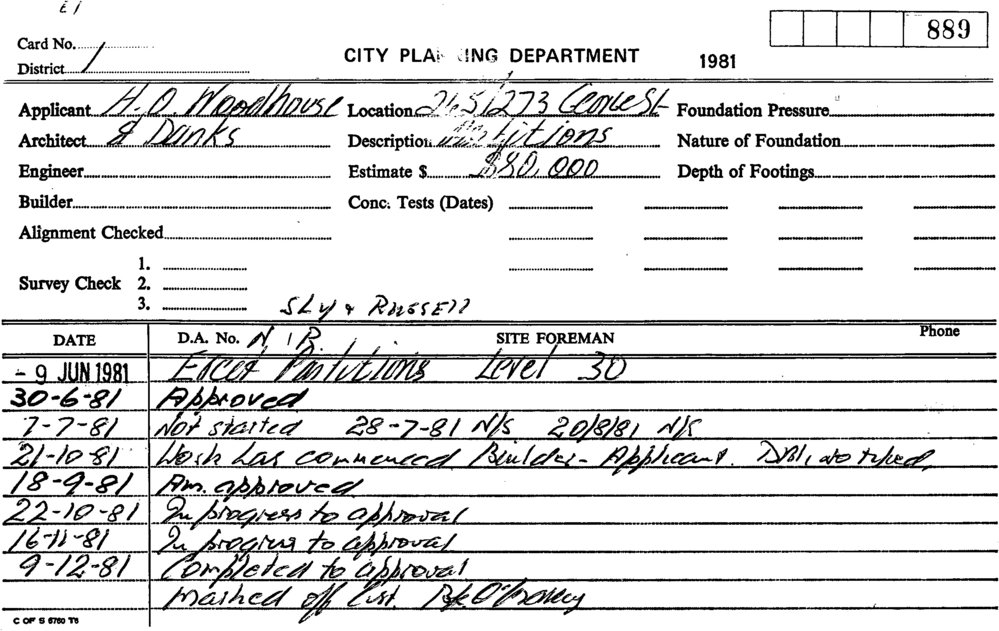 E1
889
Card No.
CITY PLANNING DEPARTMENT 1981
District 1
Applicant H. O. Woodhouse Location 265/273 George St Foundation Pressure
Architect & Danks Description Partitions Nature of Foundation
Engineer Estimate $ $80,000 Depth of Footings
Builder Conc. Tests (Dates)
Alignment Checked
1.
Survey Check 2.
3.
SLY & RUSSELL
DATE D.A. No. N/R SITE FOREMAN Phone
- 9 JUN 1981 Erect Partitions Level 30
30-6-81 Approved
7-7-81 Not started 28-7-81 N/S 20/8/81 N/S
21-10-81 Work has commenced Builder - Applicant.
18-9-81 Am. approved
22-10-81 In progress to approval
16-11-81 In progress to approval
9-12-81 Completed to approval
Marked off list.
C OF S 6760 T6